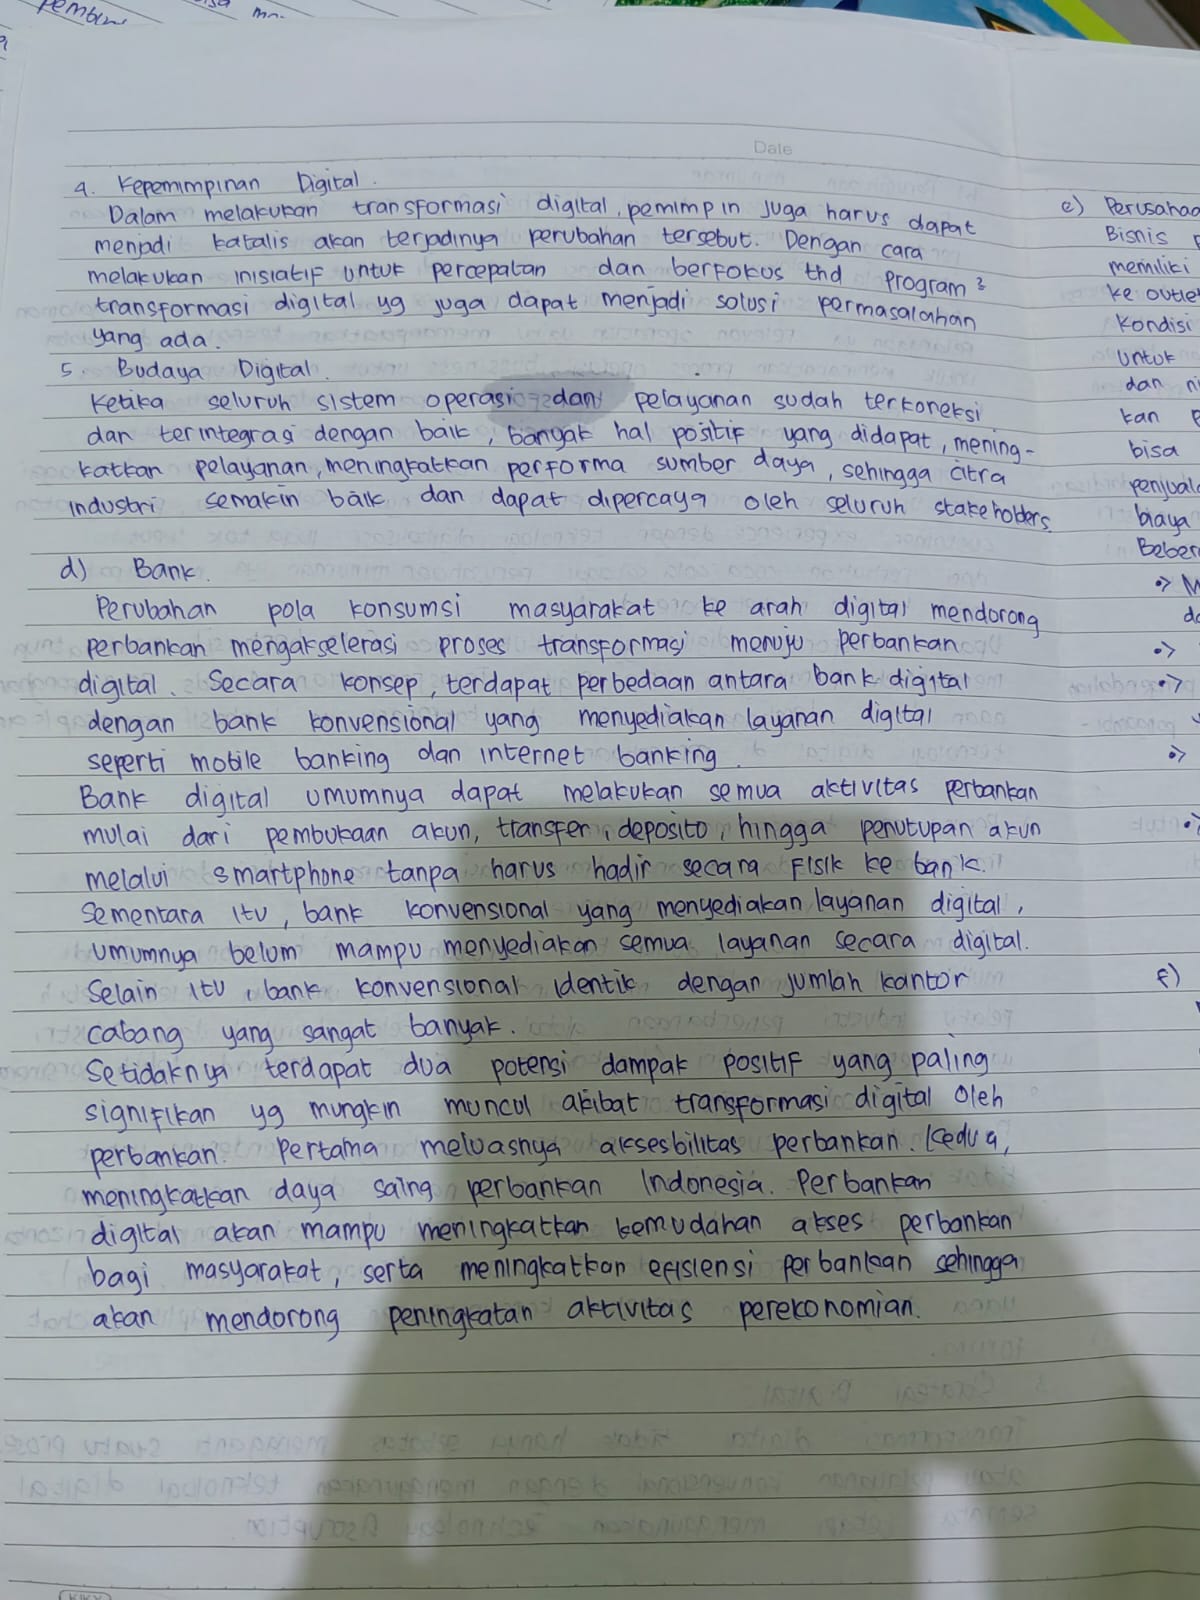 Date
4. Kepemimpinan Digital.
Dalam melakukan transformasi digital, pemimpin juga harus dapat
menjadi katalis akan terjadinya perubahan tersebut. Dengan cara
melakukan inisiatif untuk percepatan dan berfokus thd program²
transformasi digital yg juga dapat menjadi solusi permasalahan
yang ada.
5. Budaya Digital.
Ketika seluruh sistem operasi dan pelayanan sudah terkoneksi
dan terintegrasi dengan baik, banyak hal positif yang didapat, mening-
katkan pelayanan, meningkatkan performa sumber daya, sehingga citra
industri semakin baik dan dapat dipercaya oleh seluruh stakeholders.
d) Bank.
Perubahan pola konsumsi masyarakat ke arah digital mendorong
perbankan mengakselerasi proses transformasi menuju perbankan
digital. Secara konsep, terdapat perbedaan antara bank digital
dengan bank konvensional yang menyediakan layanan digital
seperti mobile banking dan internet banking.
Bank digital umumnya dapat melakukan semua aktivitas perbankan
mulai dari pembukaan akun, transfer, deposito, hingga penutupan akun
melalui smartphone tanpa harus hadir secara fisik ke bank.
Sementara itu, bank konvensional yang menyediakan layanan digital,
umumnya belum mampu menyediakan semua layanan secara digital.
Selain itu, bank konvensional identik dengan jumlah kantor
cabang yang sangat banyak.
Setidaknya terdapat dua potensi dampak positif yang paling
signifikan yg mungkin muncul akibat transformasi digital oleh
perbankan. Pertama meluasnya aksesbilitas perbankan. Kedua,
meningkatkan daya saing perbankan Indonesia. Perbankan
digital akan mampu meningkatkan kemudahan akses perbankan
bagi masyarakat, serta meningkatkan efisiensi perbankan sehingga
akan mendorong peningkatan aktivitas perekonomian.
KIKY
e) Perusahaa
Bisnis
memiliki
ke outle
Kondisi
untuk
dan ni
kan
bisa
penjuala
biaya
Beber
f)